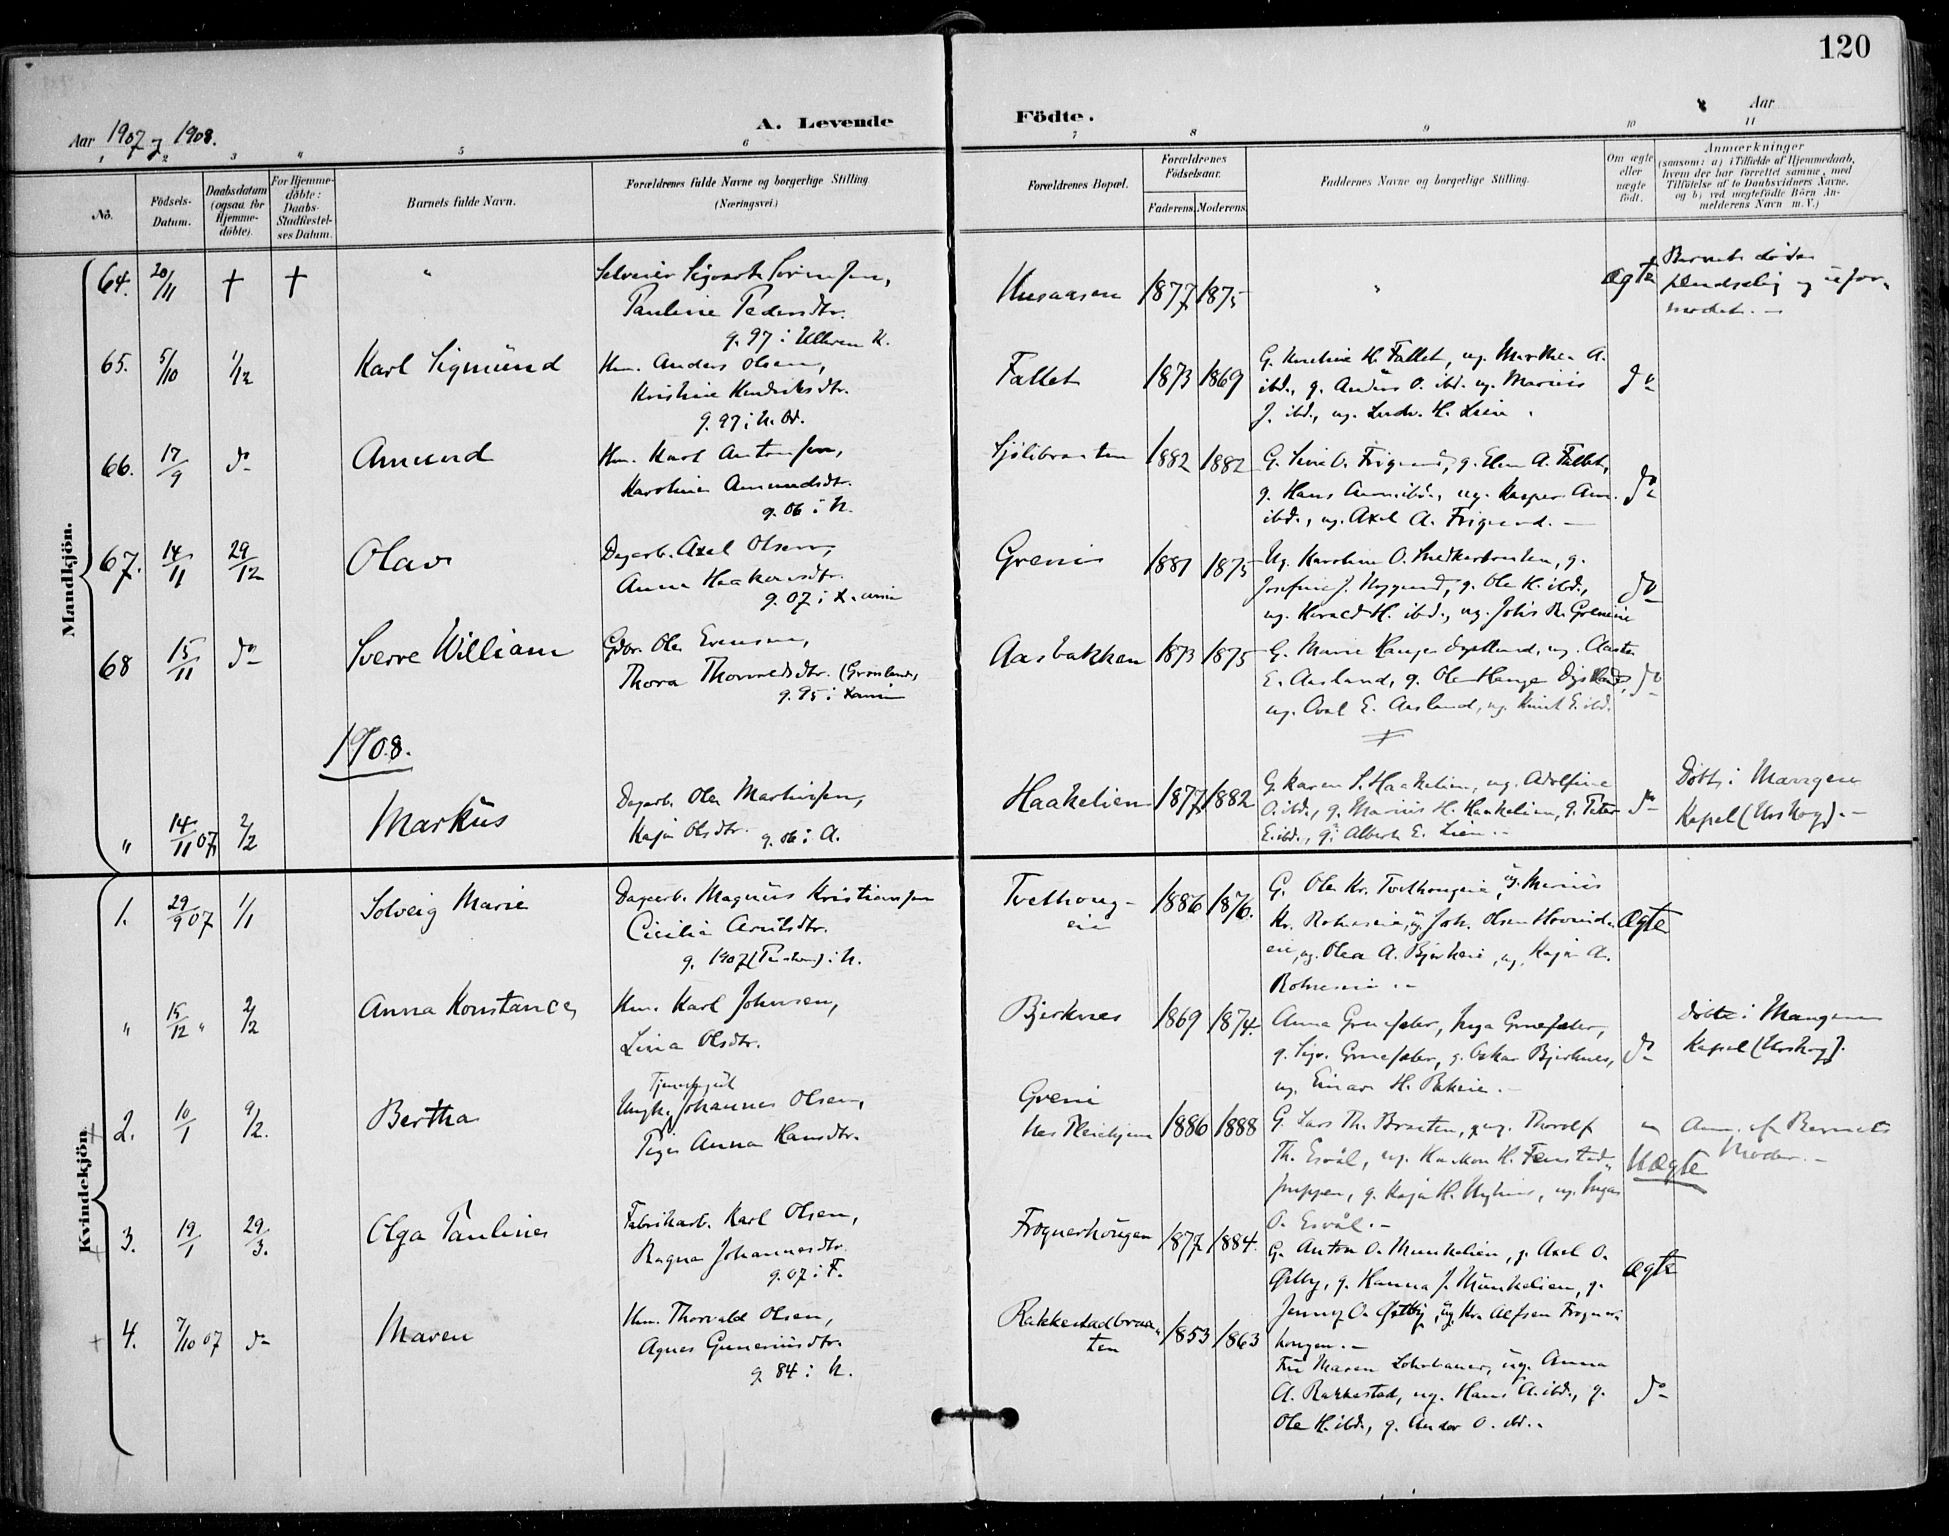 120
Aar 1907 og 1908.
A. Levende
Födte.
Aar
1 2 3 4 5 6
7 8 9 10 11
No.
Födsels-
Datum.
Daabsdatum
(ogsaa for
Hjemme-
döbte).
For Hjemme-
döbte:
Daabs-
Stadfæstel-
ses Datum.
Barnets fulde Navn.
Forældrenes fulde Navne og borgerlige Stilling
(Næringsvei.)
Forældrenes Bopæl.
Forældrenes
Födselsaar.
Faderens. Moderens.
Faddernes Navne og borgerlige Stilling.
Om ægte
eller
uægte
födt.
Anmærkninger
(saasom: a) i Tilfælde af Hjemmedaab,
hvem der har forrettet samme, med
Tilföielse af to Daabsvidners Navne,
og b) ved uægtefödte Börn An-
melderens Navn m. V.)
Mandkjön.
64. 20/11 † † "
Pauline Pedersdtr.
g. 97 i Ullern K.
Husaasen 1877 1875 " ægte
Barnet döde
og
65. 5/10 1/12 Karl Sigmund
Hm. Anders Olsen,
Kristine Hendriksdtr.
g. 97 i N.
Fallet 1873 1869
G. Kristine H. Fallet, ug. Marthea A.
ibd., g. Anders O. ibd. ug. Marius
J. ibd., ug. Ludv. H. Lien.
do
66. 17/9 do Amund
Hm. Karl Antonsen,
Karoline Amundsdtr.
g. 06 i N.
1882 1882
g. Elen A. Fallet,
g. Hans ug. Kasper
ibd., ug. Axel A.
do
67. 14/11 29/12 Olav
Dagarb. Axel Olsen,
Anna Haakensdtr.
g. 07 i
Grenie 1881 1875
Ug. Karoline O. g.
Josefine J. g. Ole H. ibd.,
ug. Harald H. ibd., ug. Johs R. Grenie
do
68 15/11 do Sverre William
Gbr. Ole Evensen,
Thora Thorvaldsdtr. (Grønland)
g. 95 i
Aasbakken 1873 1875
G. Marie Hauger ug. Aasta
E. Aasland, g. Ole Hauge
ug. E. Aasland, ug. Knut E. ibd.
do
1908.
" 14/11 07 2/2 Markus
Dagarb. Ole Martinsen,
Kaja Olsdtr. g. 06 i A.
Haakelien 1877 1882
G. Karen S. Haakelien, ug. Adolfine
O. ibd., g. Marius H. Haakelien, g. Peter
E. ibd., g. Albert E. Lien.
do
Döbt i Mangen
Kapel (Urskog).
Kvindekjön.
1. 29/9 07 1/1 Solveig Marie
Dagarb. Magnus Kristiansen
Cicilie Arntsdtr.
g. 1907 i N.
Tvethoug-
eie
1886 1876.
G. Ole Kr. Tvethougeie, ug. Marius
Kr. ug. Joh. Olsen
eie, ug. Olea A. Bjerkeie, ug. Kaja A.
ægte
" 15/12 " 2/2 Anna Konstance
Hm. Karl Johnsen,
Lina Olsdtr.
Bjerknes 1869 1874.
Anna Grue Inga Grue
g. Sigv. Grue g. Oskar Bjerknes,
ug. Einar H.
do
döbt i Mangen
Kapel (Urskog).
2. 10/1 9/2. Bertha
Ungk. Johannes Olsen,
Pige Anna Hansdtr.
Grenie
1886 1888
G. Lars Th. Braaten, ug. Thorolf
Th. Esvål, ug. Haakon H.
g. Kaja H. ug. Inga
O. Esvål.
Uægte
Anm. af Barnets
Moder.
3. 19/1 29/3. Olga Pauline
Fabrikarb. Karl Olsen,
Ragna Johannesdtr.
g. 07 i F.
Frognerhougen 1877 1884.
G. Anton O. Munkelien, g. Axel O.
g. Hanna J. Munkelien, g.
Jenny O. ug. Kr. Alfsen Frogner-
hougen.
ægte
4. 7/10 07 do Maren
Hm. Thorvald Olsen,
Agnes Guneriusdtr.
g. 84 i N.
Rakkestadbraa-
ten
1853 1863
Fru Maren Lohrbauer, ug. Anna
A. Rakkestad, ug. Hans A. ibd., g.
Ole H. ibd., g. Andor O. ibd.
do